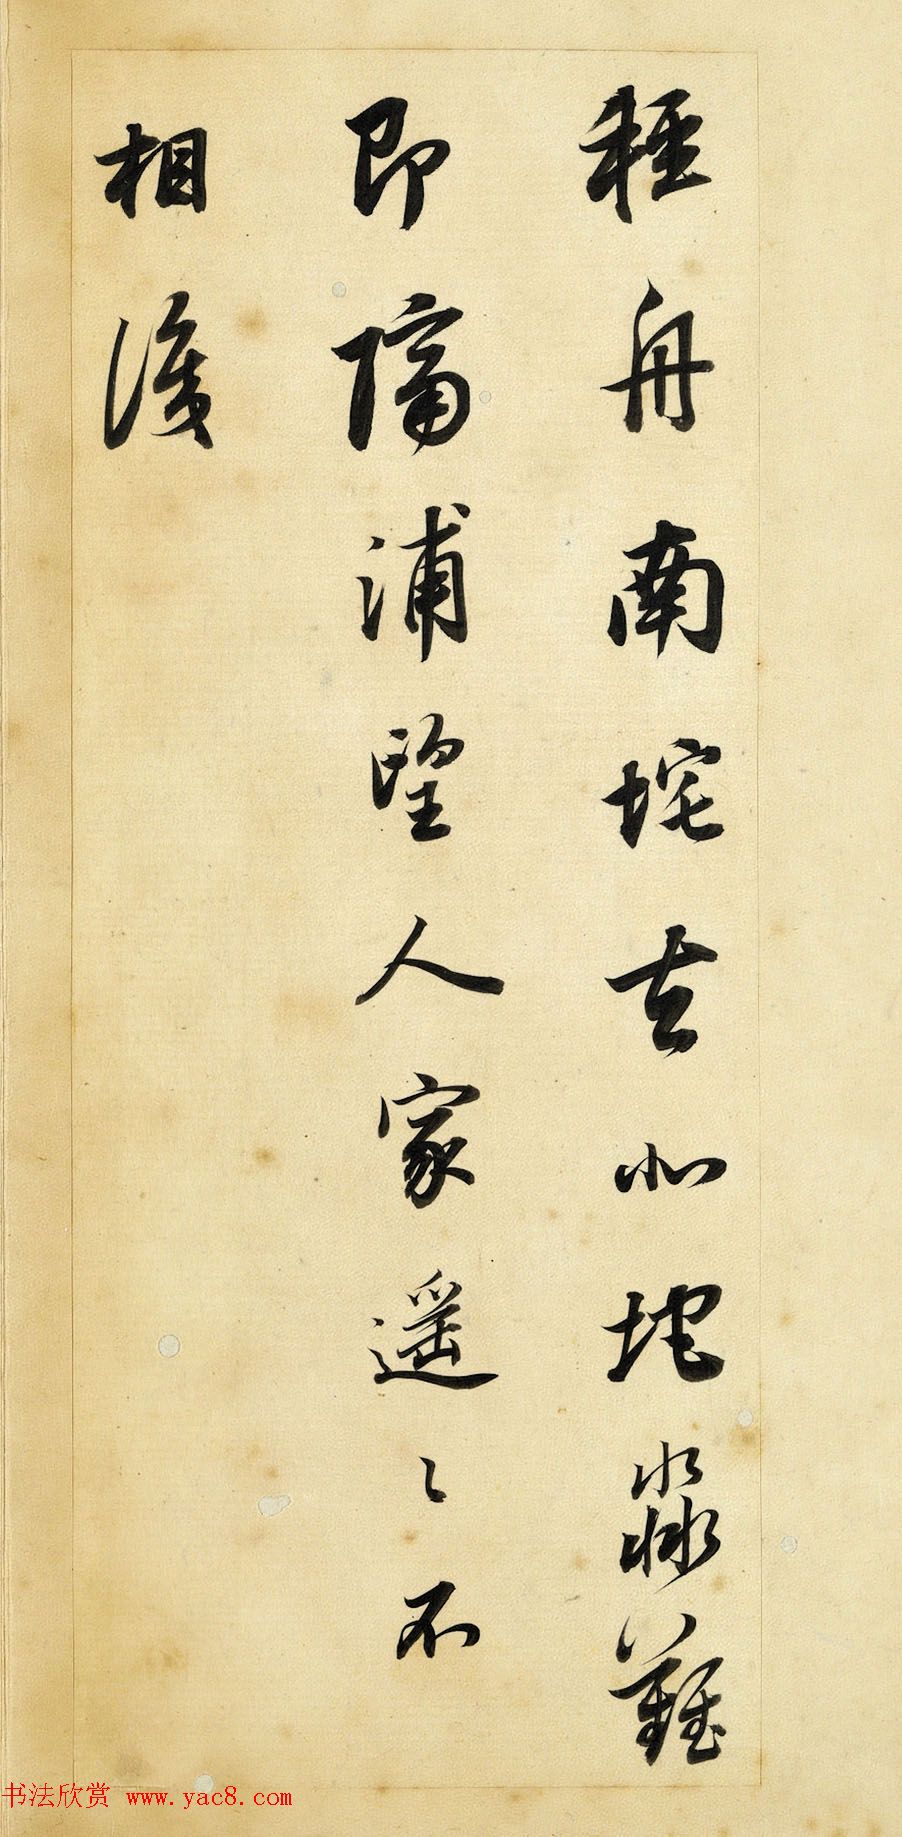 輕舟南垞去北垞淼難
即隔浦望人家遙〻不
相識
书法欣赏 www.yac8.com